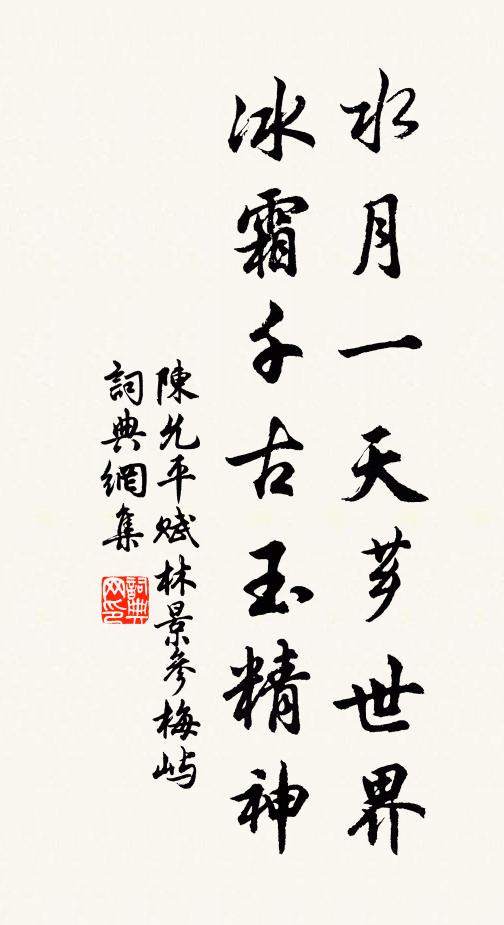 水月一天夢世界
冰霜千古玉精神
陳允平賦林景參梅嶼
詞典網集
詞典
网印